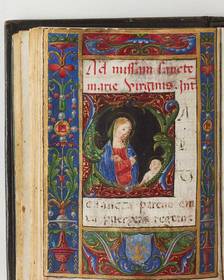 Ad missam sancte
marie Virginis. Int
S
A
L
V
e sancta parens eni
xa puerpera regem